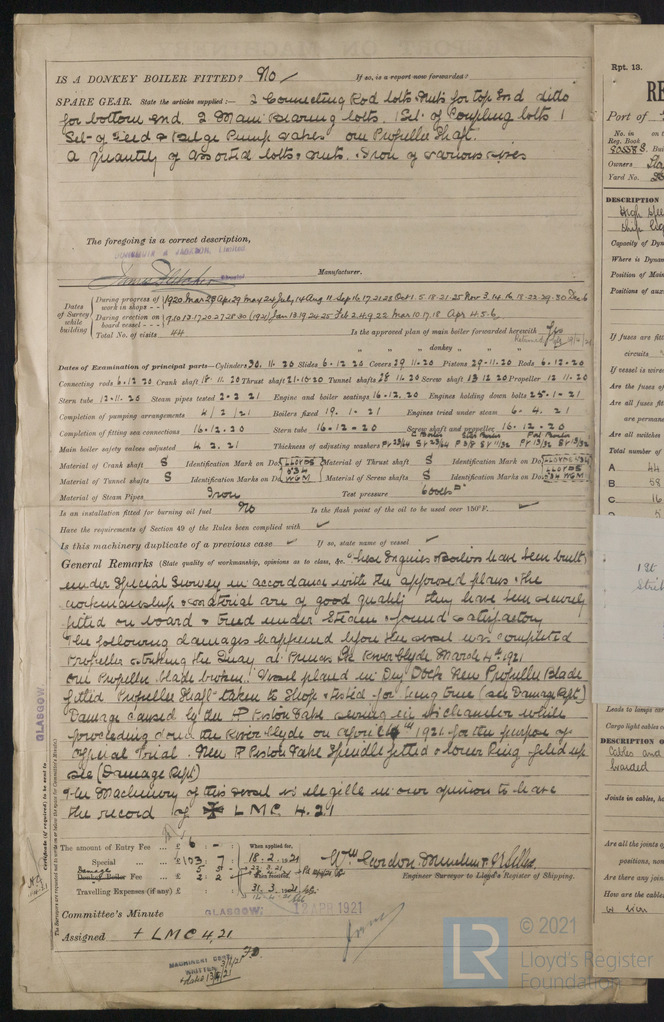 IS A DONKEY BOILER FITTED? No / If so, is a report now forwarded?
SPARE GEAR. State the articles supplied:— 2 Connecting Rod bolts & nuts for top End ditto
for bottom End. 2 Main Bearing bolts. 1 Set of Coupling bolts 1
Set of Feed & Bilge Pump Valves one Propeller Shaft.
A quantity of assorted bolts & nuts. Iron of various sizes
The foregoing is a correct description,
Manufacturer.
Dates of Survey while building
During progress of work in shops -- 1920 Mar Apr 29 May 24 July 14 Aug 11 Sep 16.17.21.28 Oct 1.5.18.21.25 Nov 3.14.16.18.22.29.30 Dec 6
During erection on board vessel --- 9.10.13.17.20.27.28.30 (1921) Jan 13.19.24.25 Feb 2.4.9.22 Mar 10.17.18 Apr 4.5.6
Total No. of visits 44 Is the approved plan of main boiler forwarded herewith Yes
" " " donkey " " "
Dates of Examination of principal parts—Cylinders 30.11.20 Slides 6.12.20 Covers 29.11.20 Pistons 29.11.20 Rods 6.12.20
Connecting rods 6.12.20 Crank shaft 18.11.20 Thrust shaft Tunnel shafts 11.20 Screw shaft 13.12.20 Propeller 12.11.20
Stern tube 12.11.20 Steam pipes tested 2.2.21 Engine and boiler seatings 16.12.20 Engines holding down bolts 25.1.21
Completion of pumping arrangements 4/2/21 Boilers fixed 19.1.21 Engines tried under steam 6.4.21
Completion of fitting sea connections 16.12.20 Stern tube 16.12.20 Screw shaft and propeller 16.12.20
Main boiler safety valves adjusted 4.2.21 Thickness of adjusting washers
Material of Crank shaft S Identification Mark on Do. LLOYDS 534 WGM Material of Thrust shaft S Identification Mark on Do.
Material of Tunnel shafts S Identification Marks on Do. Material of Screw shafts S Identification Marks on Do. LLOYDS 534 WGM
Material of Steam Pipes Iron Test pressure 600 lbs
Is an installation fitted for burning oil fuel No Is the flash point of the oil to be used over 150°F. ✓
Have the requirements of Section 49 of the Rules been complied with ✓
Is this machinery duplicate of a previous case ✓ If so, state name of vessel ✓
General Remarks (State quality of workmanship, opinions as to class, &c. These Engines & Boilers have been built
under Special Survey in accordance with the approved plans & the
workmanship & material are of good quality they have been securely
fitted on board & tried under Steam & found satisfactory
The following damages happened before the vessel was completed
Propeller striking the Quay at Princes Dk River Clyde March 4th 1921
One Propeller blade broken. Vessel placed in Dry Dock New Propeller Blade
fitted Propeller Shaft taken to Shop & tested for being true (see Damage Rept)
Damage caused by the P Piston Valve seizing in its chamber while
proceeding down the River Clyde on April 1921 for the purpose of
Official Trial. New P Piston Valve Spindle fitted & lower Ring filed up
see (Damage Rept)
The Machinery of this vessel is eligible in our opinion to have
the record of ✠ LMC 4.21
GLASGOW
Certificate (if required) to be sent to
The amount of Entry Fee ... £ 6 : - : When applied for,
Special ... £ 103 : 7 : 18.2.1921
Damage Donkey Boiler Fee ... £
Travelling Expenses (if any) £ : : 31.3.1921
Engineer Surveyor to Lloyd's Register of Shipping.
Committee's Minute GLASGOW 12 APR 1921
Assigned + LMC 4,21
MACHINERY CERT.
WRITTEN
Rpt. 13.
RE
Port of
No. in
Reg. Book
Owners
Yard No.
DESCRIPTION
Capacity of Dy
Where is Dynam
Position of Mai
Position of aux
If fuses are fit
circuits
If vessel is wired
Are the fuses of
Are all fuses fi
are perman
Are all switches
Total number of
A 44
B 58
C 16
D
1 St
Leads to lamps car
Cargo light cables c
DESCRIPTION O
Cables and
Joints in cables, h
Are all the joints of
positions, non
Are there any join
How are the cables
© 2021
LR
Lloyd's Register
Foundation